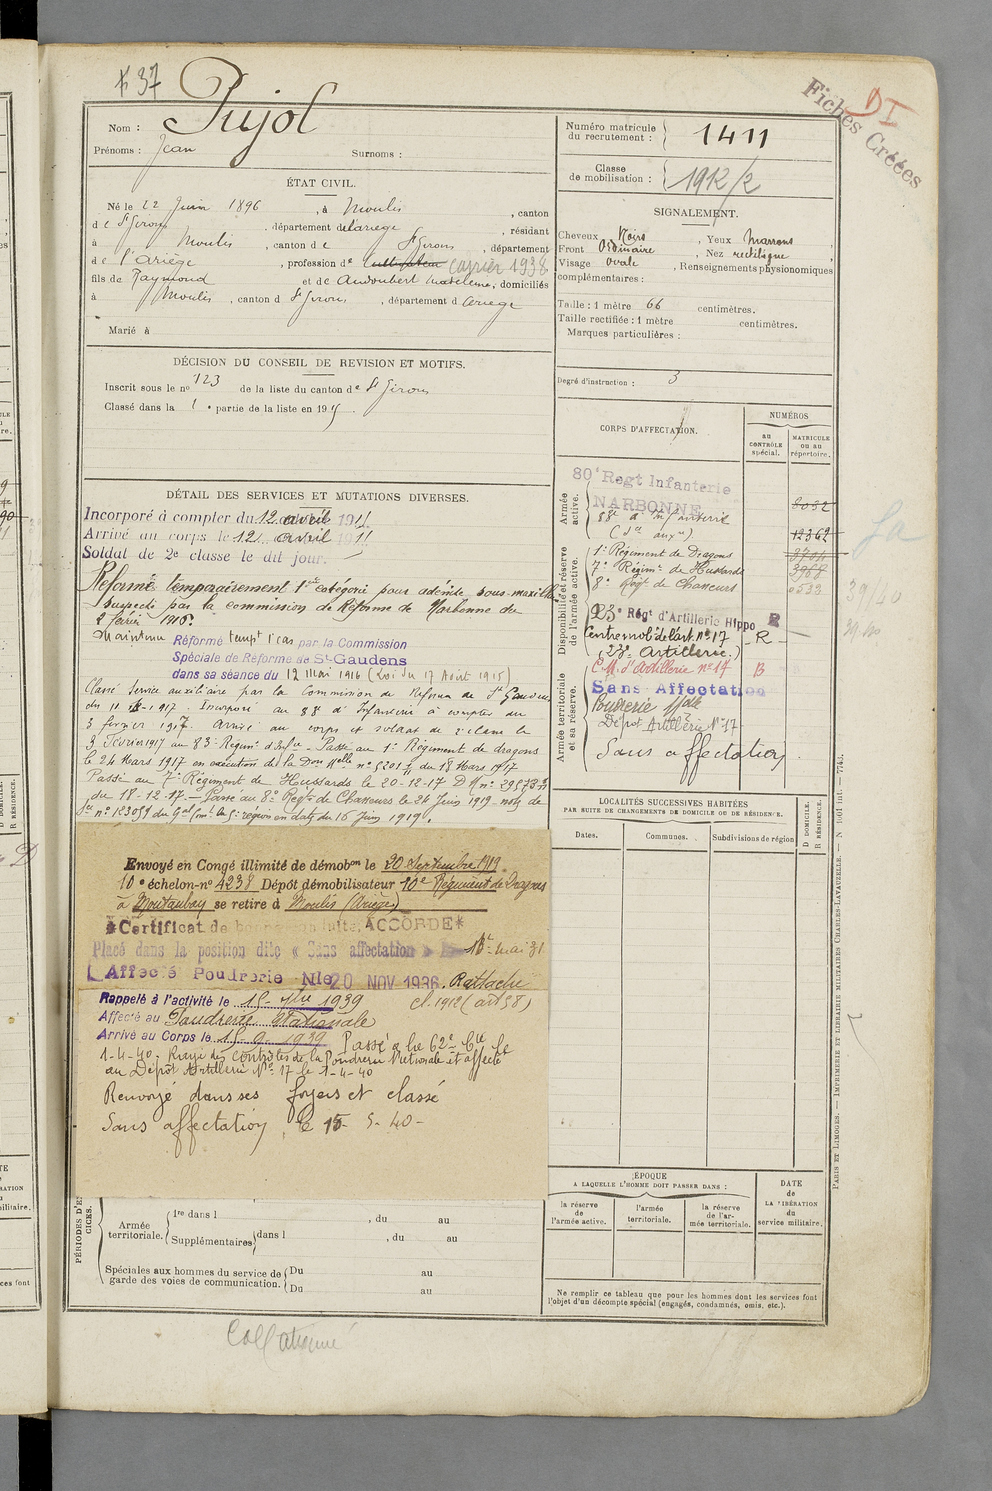 37
Fichés Créées
D I
Nom : Pujol
Prénoms : Jean
Surnoms :
Numéro matricule du recrutement : 1411
Classe de mobilisation : 1912/2
ÉTAT CIVIL.
Né le 22 Juin 1896, à Moulis, canton
de St Girons, département de l'ariège, résidant
à Moulis, canton de St Girons, département
de l'Ariège, profession de Cultivateur carrier 1938
fils de Raymond et de Audoubert Madeleine, domiciliés
à Moulis, canton d St Girons, département d Ariège
Marié à
SIGNALEMENT.
Cheveux Noirs, Yeux Marrons,
Front Ordinaire, Nez rectiligne,
Visage Ovale, Renseignements physionomiques
complémentaires :
Taille : 1 mètre 66 centimètres.
Taille rectifiée : 1 mètre centimètres.
Marques particulières :
Degré d'instruction : 3
DÉCISION DU CONSEIL DE REVISION ET MOTIFS.
Inscrit sous le no 123 de la liste du canton de St Girons
Classé dans la 1e partie de la liste en 191
DÉTAIL DES SERVICES ET MUTATIONS DIVERSES.
Incorporé à compter du 12 avril 191
Arrivé au corps le 12 avril 191
Soldat de 2e classe le dit jour.
Réformé temporairement 1ère catégorie pour adénite sous-maxillaire
suspecte par la commission de Réforme de Narbonne du
2 février 1916.
Maintenu Réformé tempre 1e cas par la Commission
Spéciale de Réforme de St-Gaudens
dans sa séance du 12 Mai 1916 (Loi du 17 Août 1915)
Classé Service auxiliaire par la Commission de Réforme de St Gaudens
du 1917. Incorporé au 88e d'Infanterie à compter du
3 février 1917. Arrivé au corps et soldat de 2e classe le
3 Février 1917 au 83e Régimt d'Infie - Passé au 1e Régiment de dragons
le 24 Mars 1917 en exécution de la Don Melle no 5201 du 18 Mars 1917
Passé au 7e Régiment de Hussards le 20-12-17 D M no
du 18-12-17 - Passé au 8e Régt de Chasseurs le 24 Juin 1919 note de
Sce no 123059 du Gal Cmt la région en date du 16 Juin 1919.
Envoyé en Congé illimité de démobon le 20 Septembre 1919.
10e échelon-no 4238 Dépôt démobilisateur 10e Régiment de Dragons
à Montauban se retire à Moulis (Ariège)
*Certificat de bonne conduite, ACCORDÉ*
Placé dans la position dite « Sans affectation » le 15 mai 31
Affecté Poudrerie Nle 20 NOV 1936. Rattaché
cl. 1912 (art 58)
Rappelé à l'activité le 15 - 7bre 1939
Affecté au Poudrerie Nationale
Arrivé au Corps le 15. 9. 1939 Passé à la 62e Cie le
1-4-40. Rayé des contrôles de la Poudrerie Nationale et affecté
au Dépôt Artillerie No 17 le 1-4-40
Renvoyé dans ses foyers et classé
Sans affectation le 15 - 5 - 40 -
CORPS D'AFFECTATION.
NUMÉROS
au CONTRÔLE spécial.
MATRICULE ou au répertoire.
Armée active.
80e Regt Infanterie
NARBONNE
88e d'Infanterie
(sce auxre)
8032
12362
Disponibilité et réserve de l'armée active.
1e Régiment de Dragons
7e Régimt de Hussards
8e Régt de Chasseurs
3704
3968
23e Régt d'Artillerie Hippo R
Centre mob' de l'art. no 17 - R -
(23e Artillerie.)
C.M. d'artillerie no 17 B
Armée territoriale et sa réserve.
Sans Affectation
Poudrerie Nale
Dépôt Artillerie No 17
Sans affectation
39/40
LOCALITÉS SUCCESSIVES HABITÉES
PAR SUITE DE CHANGEMENTS DE DOMICILE OU DE RÉSIDENCE.
Dates.
Communes.
Subdivisions de région
D DOMICILE.
R RÉSIDENCE.
ÉPOQUE
A LAQUELLE L'HOMME DOIT PASSER DANS :
la réserve de l'armée active.
l'armée territoriale.
la réserve de l'armée territoriale.
DATE de LA LIBÉRATION du service militaire.
Ne remplir ce tableau que pour les hommes dont les services font
l'objet d'un décompte spécial (engagés, condamnés, omis, etc.).
Armée territoriale.
1re dans l , du au
Supplémentaires dans l , du au
Spéciales aux hommes du service de garde des voies de communication.
Du au
Du au
PARIS ET LIMOGES. — IMPRIMERIE ET LIBRAIRIE MILITAIRES CHARLES-LAVAUZELLE. — N 1001 int. — 7743.
Collationné